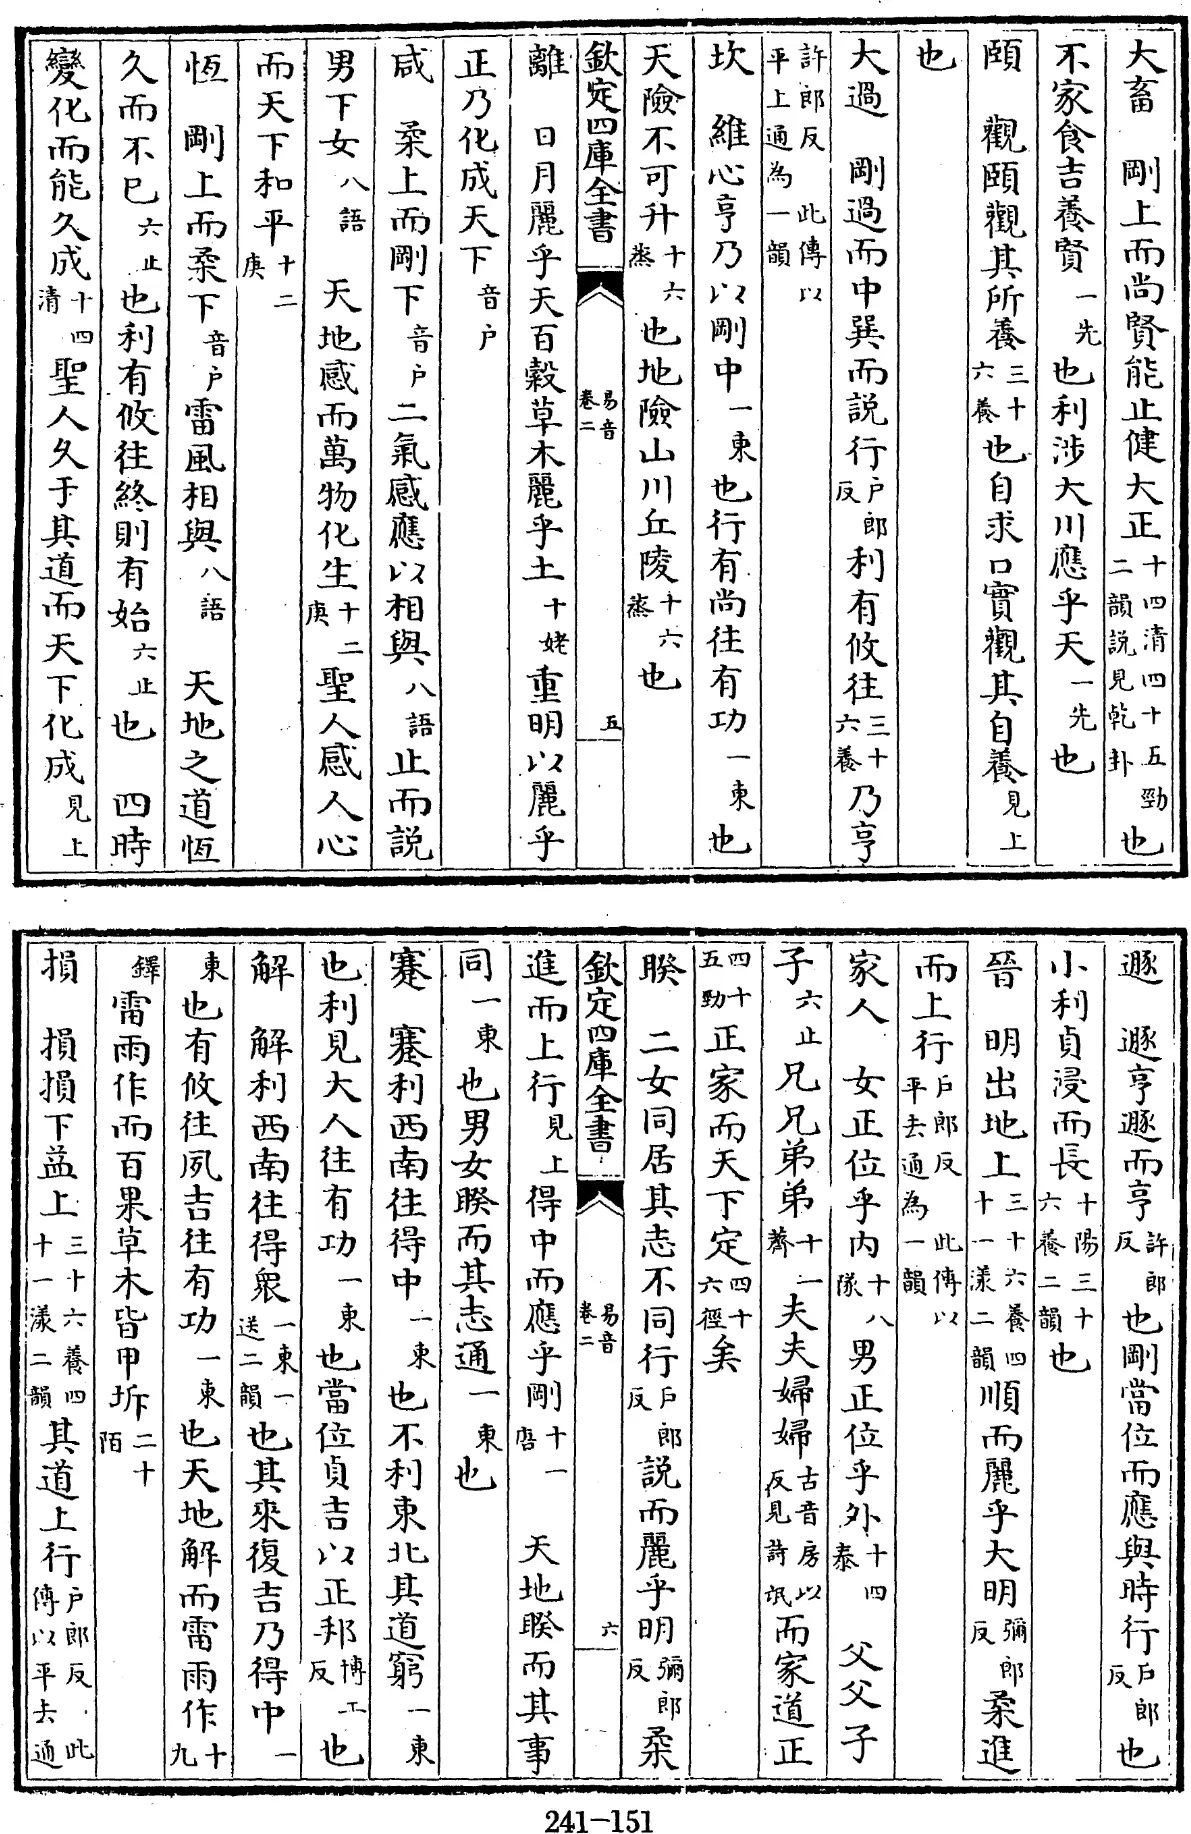 大畜　剛上而尚賢能止健大正十四清四十五勁二韻說見乾卦也
不家食吉養賢一先也利涉大川應乎天一先也
頤　觀頤觀其所養三十六養也自求口實觀其自養見上
也
大過　剛過而中巽而說行戶郎反利有攸往三十六養乃亨
許郎反　此傳以平上通為一韻
坎　維心亨乃以剛中一東也行有尚往有功一東也
天險不可升十六蒸也地險山川丘陵十六蒸也
欽定四庫全書　易音卷二　五
離　日月麗乎天百穀草木麗乎土十姥重明以麗乎
正乃化成天下音戶
咸　柔上而剛下音戶二氣感應以相與八語止而說
男下女八語　天地感而萬物化生十二庚聖人感人心
而天下和平十二庚
恆　剛上而柔下音戶雷風相與八語　天地之道恆
久而不已六止也利有攸往終則有始六止也　四時
變化而能久成十四清聖人久于其道而天下化成見上
遯　遯亨遯而亨許郎反也剛當位而應與時行戶郎反也
小利貞浸而長十陽三十六養二韻也
晉　明出地上三十六養四十一漾二韻順而麗乎大明彌郎反柔進
而上行戶郎反　此傳以平去通為一韻
家人　女正位乎內十八隊男正位乎外十四泰　父父子
子六止兄兄弟弟十一薺夫夫婦婦古音房以反見詩氓而家道正
四十五勁正家而天下定四十六徑矣
睽　二女同居其志不同行戶郎反說而麗乎明彌郎反柔
欽定四庫全書　易音卷二　六
進而上行見上得中而應乎剛十一唐　天地睽而其事
同一東也男女睽而其志通一東也
蹇　蹇利西南往得中一東也不利東北其道窮一東
也利見大人往有功一東也當位貞吉以正邦博工反也
解　解利西南往得衆一東一送二韻也其來復吉乃得中一
東也有攸往夙吉往有功一東也天地解而雷雨作十九
鐸雷雨作而百果草木皆甲坼二十陌
損　損損下益上三十六養四十一漾二韻其道上行戶郎反此傳以平去通
241-151